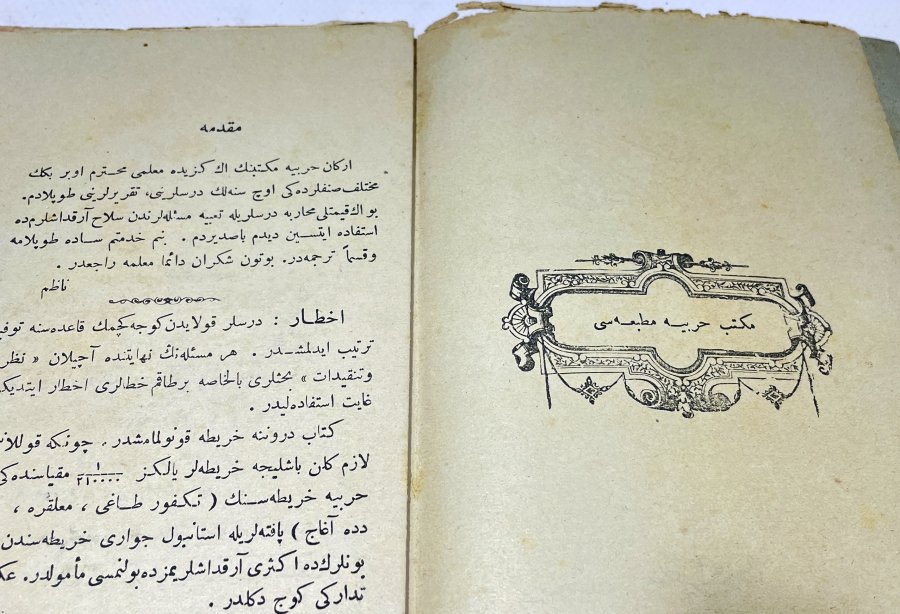 مقدمه
اركان حربيه مكتبنك اك كزيده معلمى محترم اوبر بكك
مختلف صنفلرده كى اوچ سنه لك درسلرينى، تقريرلرينى طوپلادم.
بو اك قيمتلى محاربه درسلريله تعبيه مسئله لرندن سلاح آرقداشلرم ده
استفاده ايتسين ديدم باصديردم . بنم خدمتم ساده طوپلامه
وقسماً ترجمه در. بوتون شكران دائما معلمه راجعدر .
ناظم
اخطار : درسلر قولايدن كوجه كچمك قاعده سنه
ترتيب ايدلمشدر . هر مسئله نك نهايتنده آچيلان « نظر
وتنقيدات » بحثلرى بالخاصه برطاقم خطالرى اخطار
غايت استفاده ليدر .
كتاب دروننه خريطه قونولمامشدر . چونكه
لازم كان باشليجه خريطه لر يالكز مقياسنده كى
حربيه خريطه سنك ( تكفور طاغى ، معلقره ،
دده آغاج ) پافته لريله استانبول جوارى خريطه سندن
بونلرك ده اكثرى آرقداشلريمزده بولنمسى مأمولدر.
تداركى كوج دكلدر .
مكتب حربيه مطبعه سى